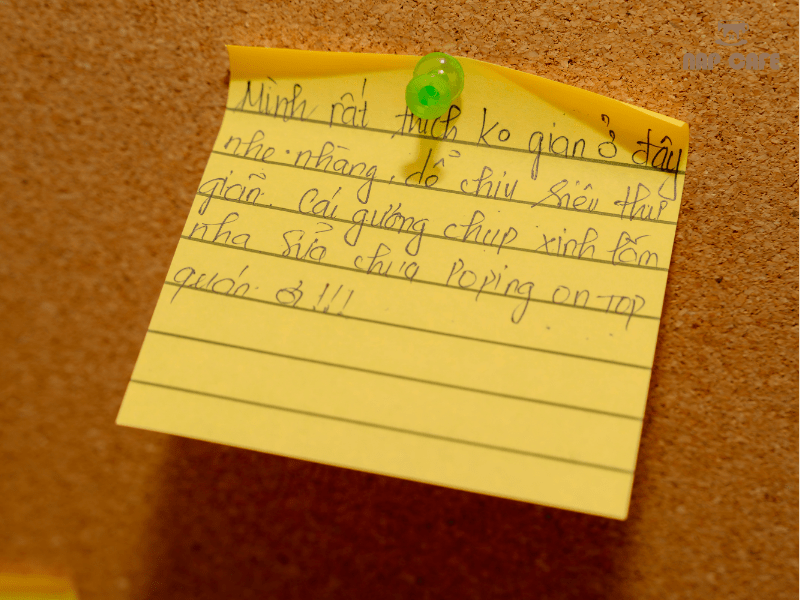 Mình rất thích ko gian ở đây
nhẹ nhàng, dễ chịu siêu thư
giãn. Cái gương chụp xinh lắm
nha sữa chua Poping on TOP
quán ơi!!!